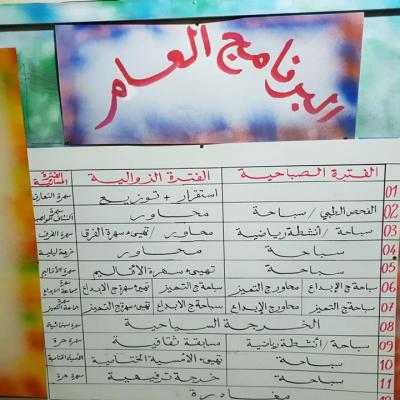 البرنامج العام
الفترة الصباحية الفترة الزوالية الفترة المسائية
01 استقرار + توزيع سهرة التعارف
02 الفحص الطبي / سباحة محاور سهرة اكتشاف المواهب
03 سباحة / أنشطة رياضية محاور / تهيئ سهرة الفرق سهرة الفرق
04 سباحة محاور خرجة ليلية
05 سباحة تهيئ سهرة الأقاليم سهرة الأقاليم
06 سباحة ج الإبداع محاور ج التميز سباحة ج التميز تهيئ سهرة ج الإبداع سهرة جماعة الإبداع
07 سباحة ج التميز محاور ج الإبداع سباحة ج الإبداع تهيئ سهرة ج التميز سهرة جماعة التميز
08 الخرجة السياحية سهرة سينمائية
09 سباحة / أنشطة رياضية مسابقة ثقافية سهرة حرة
10 سباحة تهيئ الأمسية الختامية الأمسية الختامية
11 سباحة خرجة ترفيهية سهرة حرة
12 مغادرة